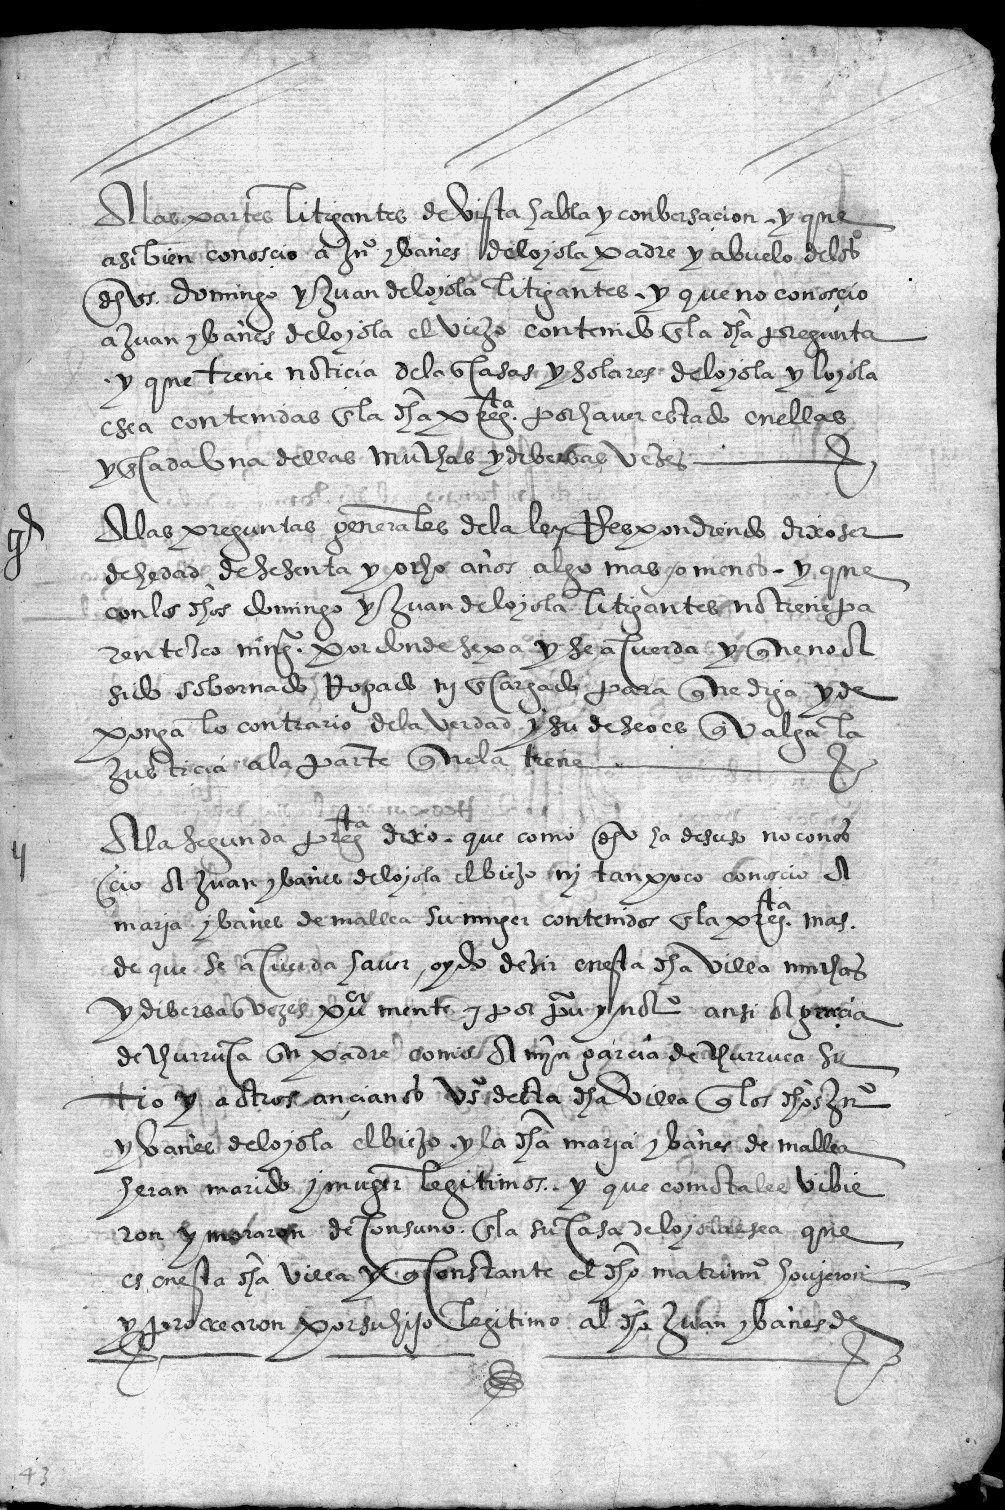 A las partes litigantes de vista habla y conbersaçion. y que
asi bien conosçio a Juº ybañes de loyola padre y abuelo de los
dhos domingo y Juan de loyola litigantes. y que no conosçio
a Juan ybañes de loyola el viejo contenido en la dha pregunta
. y que tiene notiçia de las casas y solares de loyola y loyola
chea contenidas en la dha pregta. por haver estado en ellas
y en cada una dellas muchas y diversas vezes
gs
A las preguntas generales de la ley Respondiendo dixo ser
de hedad de sesenta y ocho años algo mas o menos. y que
con los dhos domingo y Juan de loyola litigantes no tiene pa
rentesco ning. por donde sepa y se acuerda y que no a
sido sobornado Rogado nj encargado para que diga y de
ponga lo contrario de la verdad y su deseo es que valga la
Justiçia a la parte que la tiene
ij
A la segunda pregta dixo. que como dho ha desuso no conos
çio a Juan ybañes de loyola el biejo nj tanpoco conosçio a
marja ybañes de mallea su muger contenidos en la pregta. mas.
de que se acuerda haver oydo dezir en esta dha villa muchas
y diversas vezes mente ansi a graçia
de churruca su padre como a myn garçia de churruca su
tio y a otros ançianos vºs desta dha villa que los dhos Juº
ybañes de loyola el biejo. y la dha marja ybañes de mallea
heran marido y muger legitimos. y que como tales vibie
ron y moraron de consuno. en la su casa de loyolachea que
es en esta dha villa y que constante el dho matrimº hovjeron
y procrearon por su hijo legitimo al dho Juan ybañes de
43